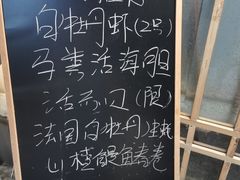 白牡丹虾(2号)
马粪活海胆
活赤贝(限)
法国白牡丹生蚝
山楂鳗鱼寿卷